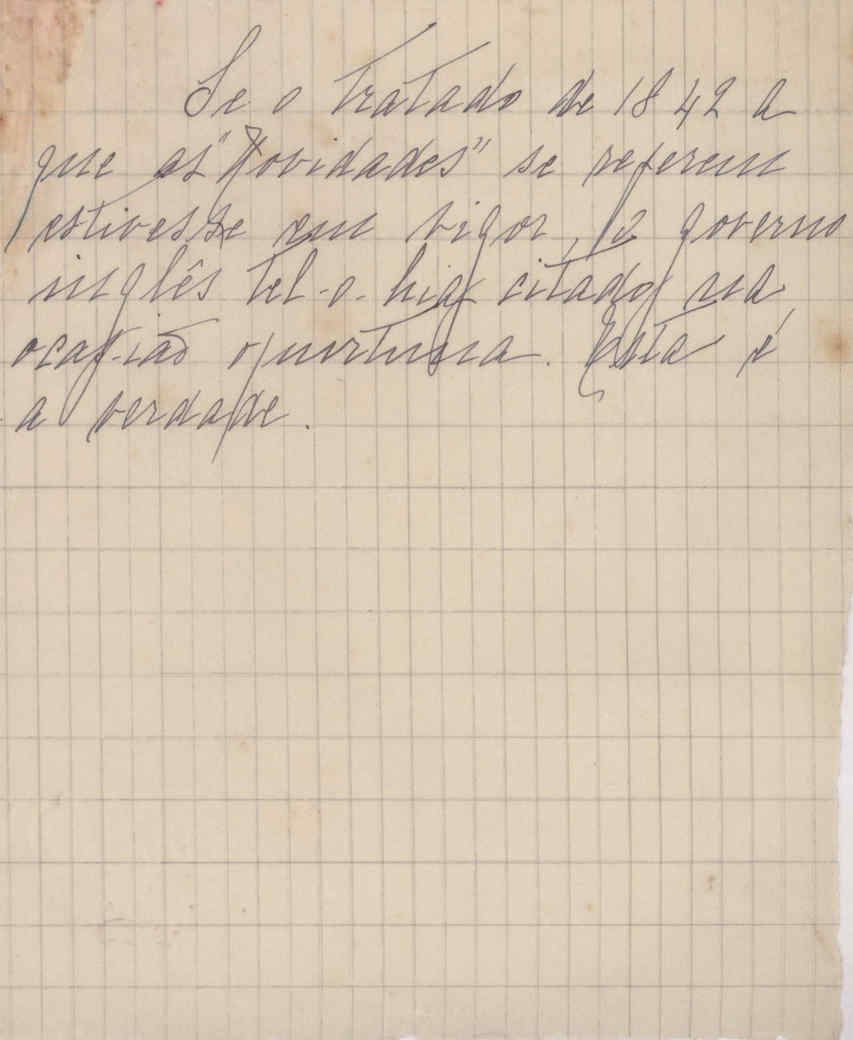 Se o tratado de 1842 a
que as "Novidades" se referem
estivesse em vigor, o governo
inglês tel-o-hia citado na
ocasião oportuna. Esta é
a verdade.